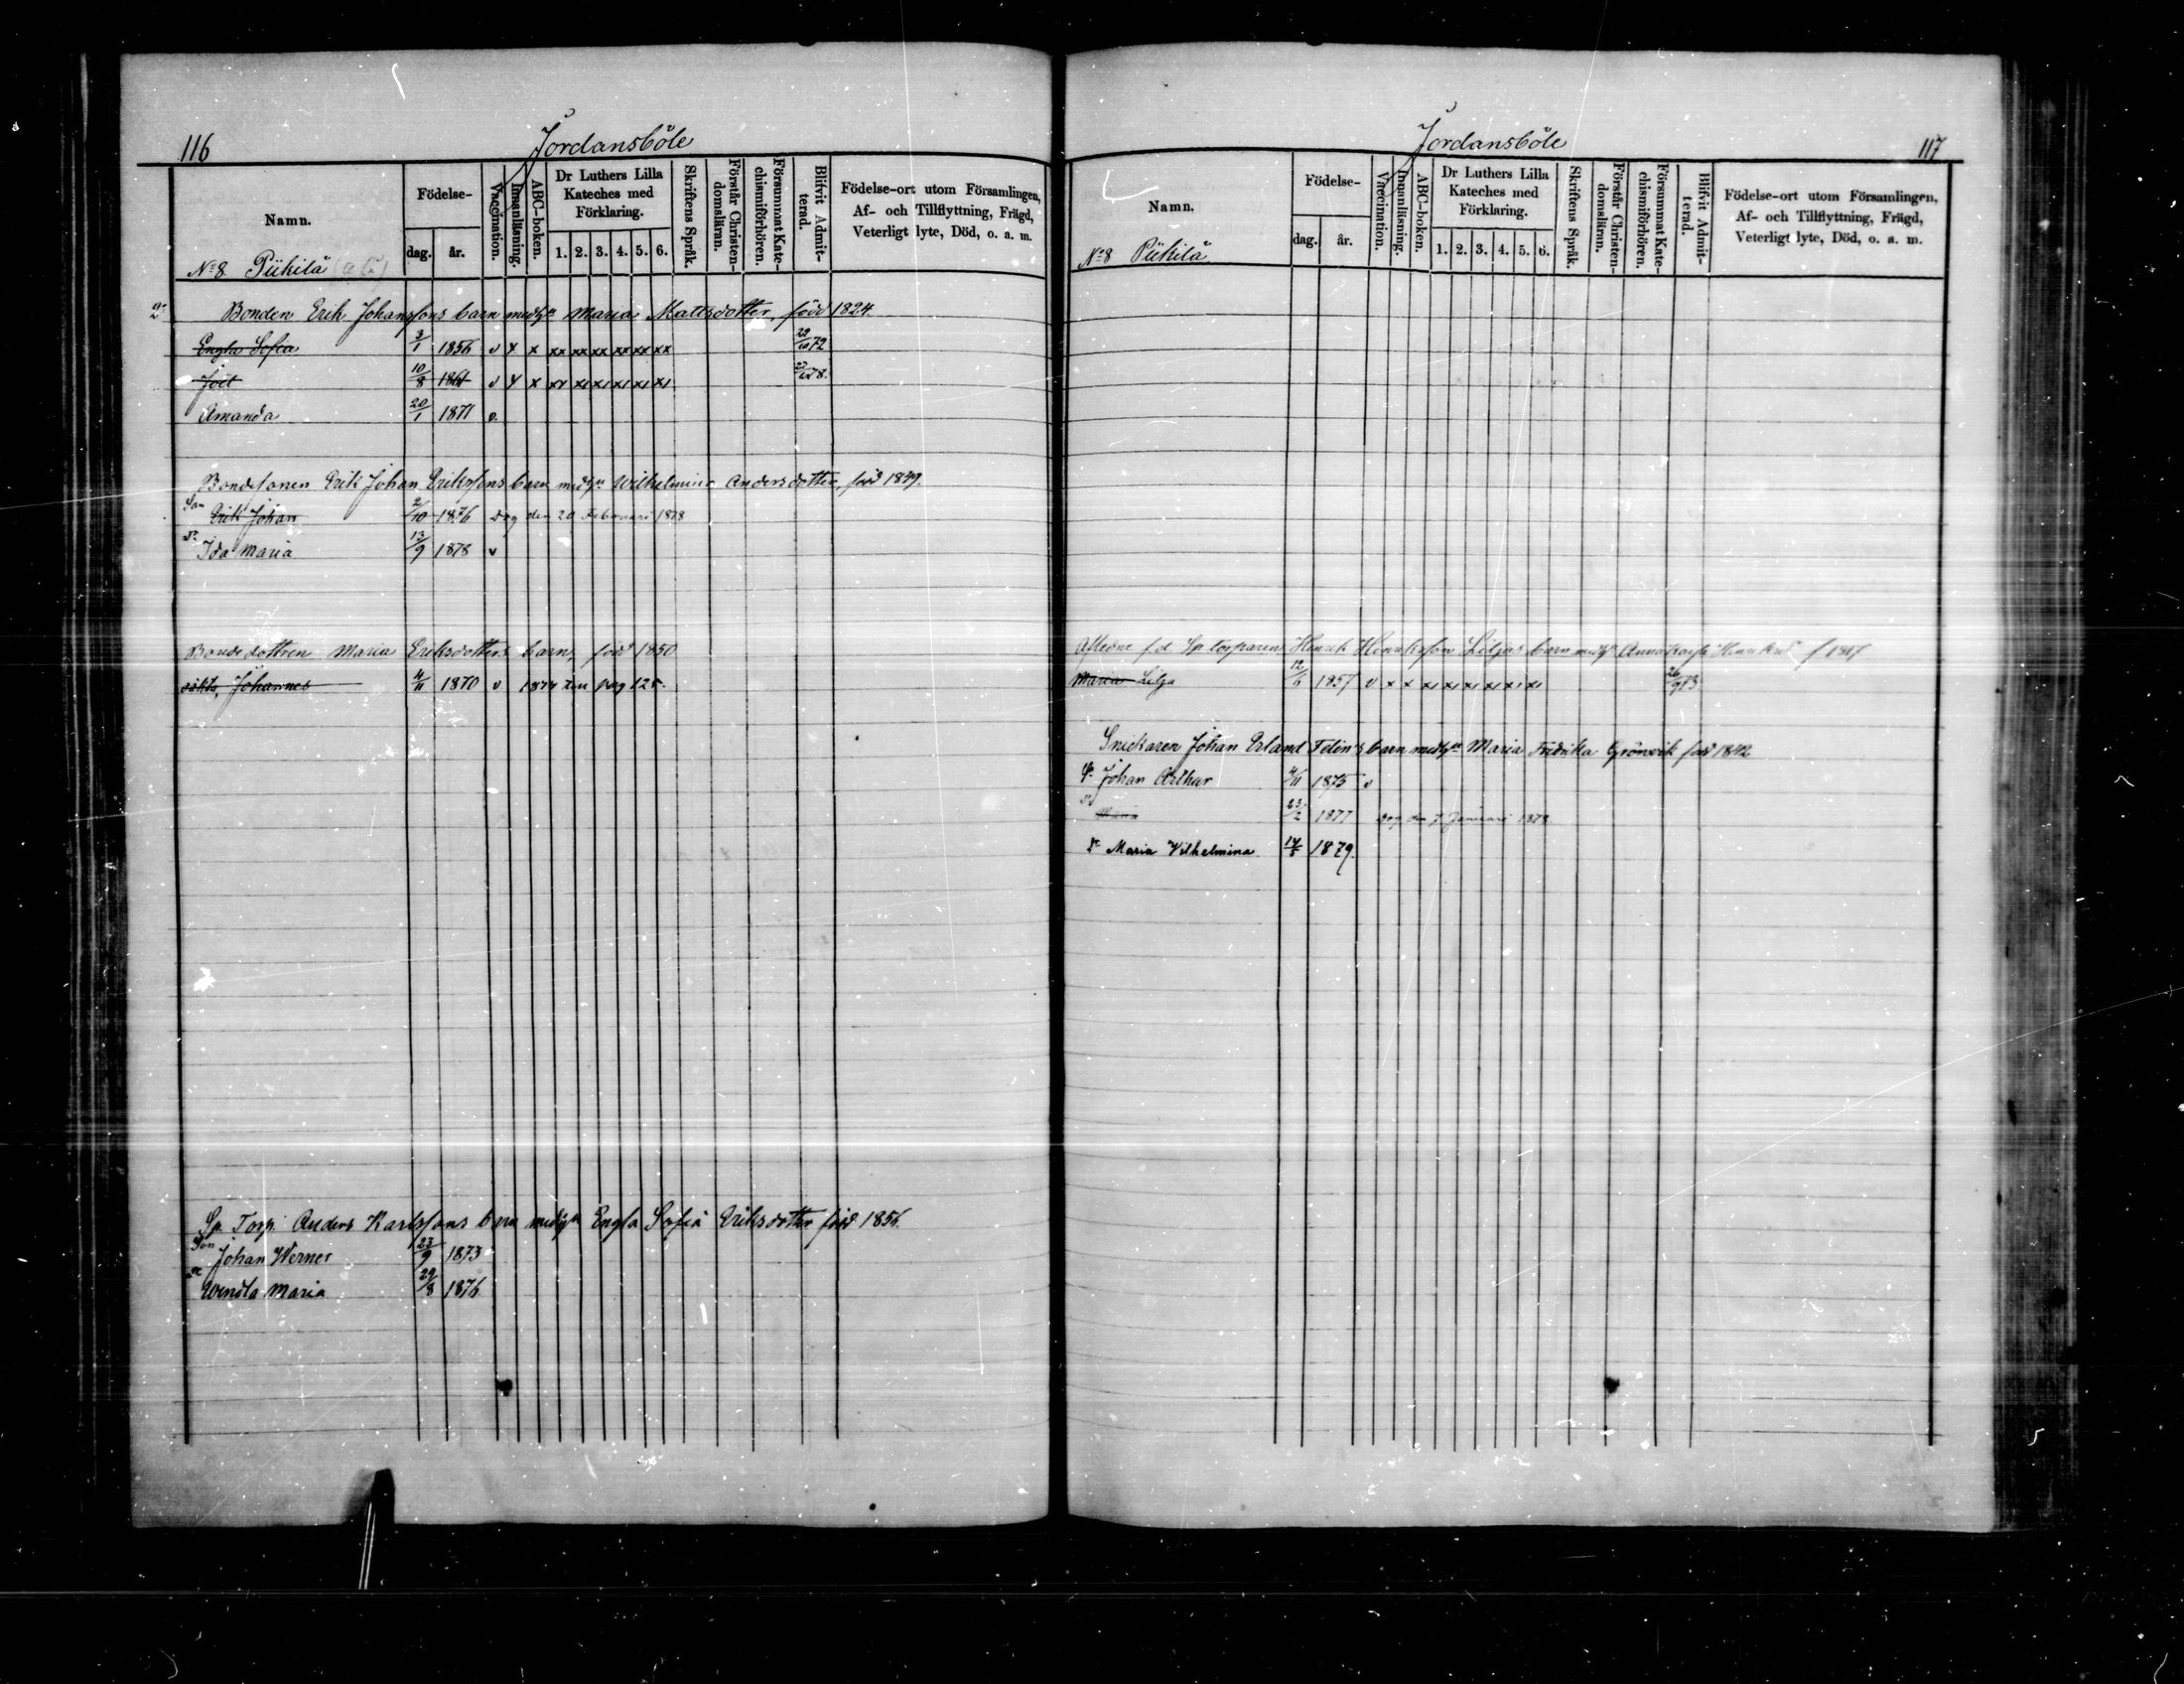 116
Jordansböle
Namn.
Födelse-
dag. år.
Vaccination.
Innanläsning.
ABC-boken.
Dr Luthers Lilla Kateches med Förklaring.
1. 2. 3. 4. 5. 6.
Skriftens Språk.
Förstår Christendomsläran.
Försummat Katechismiförhören.
Blifvit Admitterad.
Födelse-ort utom Församlingen, Af- och Tillflyttning, Frägd, Veterligt lyte, Död, o. a. m.
No 8 Piikilä
Bonden Erik Johanssons barn med hu Maria Mattsdotter, född 1824.
Engla Sofia 3/1 1856 v x x xx xx xx xx xx xx 72
Joel 10/8 1861 v x x xx xx xx xx xx xx 78.
Amanda 20/1 1871 v.
Bondesonen Erik Johan Erikssons barn med hu Wilhelmina Andersdotter, född 1849.
Son Erik Johan 2/10 1876 dog den 20 Februari 1878
Dr Ida Maria 13/9 1878 v
Bondedottren Maria Eriksdotters barn, född 1850
oäkta, Johannes 4/11 1870 v 1874 till pag 125.
Sp. Torp. Anders Karlssons barn med hu Engla Sofia Eriksdotter född 1856.
Son Johan Werner 23/9 1873
Dr Wendla Maria 29/8 1876
Jordansböle
117
Namn.
Födelse-
dag. år.
Vaccination.
Innanläsning.
ABC-boken.
Dr Luthers Lilla Kateches med Förklaring.
1. 2. 3. 4. 5. 6.
Skriftens Språk.
Förstår Christendomsläran.
Försummat Katechismiförhören.
Blifvit Admitterad.
Födelse-ort utom Församlingen, Af- och Tillflyttning, Frägd, Veterligt lyte, Död, o. a. m.
No 8 Piikilä
Aflidne f.d. Sp torparen Henrik Henriksson Liljas barn med hu Anna f 1817
Maria Lilja 12/6 1857 v x x xx xx xx xx xx xx 26/9 73
Snickaren Johan Erland Felin's barn med hu Maria Fredrika Grönvik född 1842
Johan Arthur 1875 v
Maria 23/2 1877 dog den 7 Januari 1878
Dr Maria Vilhelmina 14/5 1879.